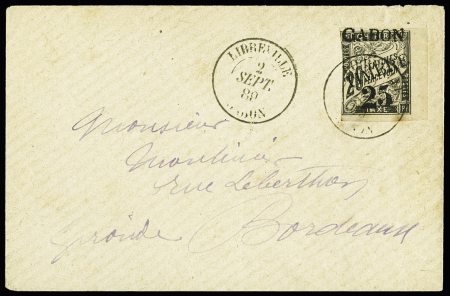 LIBREVILLE
2
SEPT.
89
GABON
GABON
TIMBRE
25
TAXE
Monsieur
Moulinié
rue Leberthon
gironde Bordeaux